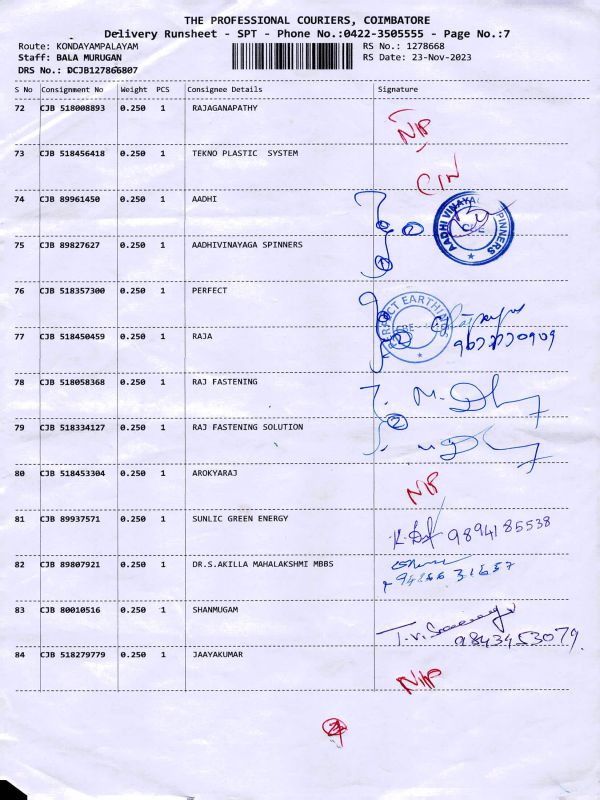 THE PROFESSIONAL COURIERS, COIMBATORE
Delivery Runsheet - SPT - Phone No.:0422-3505555 - Page No.:7
Route: KONDAYAMPALAYAM RS No.: 1278668
Staff: BALA MURUGAN RS Date: 23-Nov-2023
DRS No.: DCJB127866807
S No Consignment No Weight PCS Consignee Details Signature
72 CJB 518008893 0.250 1 RAJAGANAPATHY
73 CJB 518456418 0.250 1 TEKNO PLASTIC SYSTEM
74 CJB 89961450 0.250 1 AADHI
AADHI VINAYAGA SPINNERS
CBE
75 CJB 89827627 0.250 1 AADHIVINAYAGA SPINNERS
76 CJB 518357300 0.250 1 PERFECT
PERFECT EARTHING
CBE
77 CJB 518450459 0.250 1 RAJA
78 CJB 518058368 0.250 1 RAJ FASTENING
2
79 CJB 518334127 0.250 1 RAJ FASTENING SOLUTION
80 CJB 518453304 0.250 1 AROKYARAJ
81 CJB 89937571 0.250 1 SUNLIC GREEN ENERGY 9894185538
82 CJB 89807921 0.250 1 DR.S.AKILLA MAHALAKSHMI MBBS
83 CJB 80010516 1 SHANMUGAM T.V. 9843453079
84 CJB 518279779 0.250 1 JAAYAKUMAR